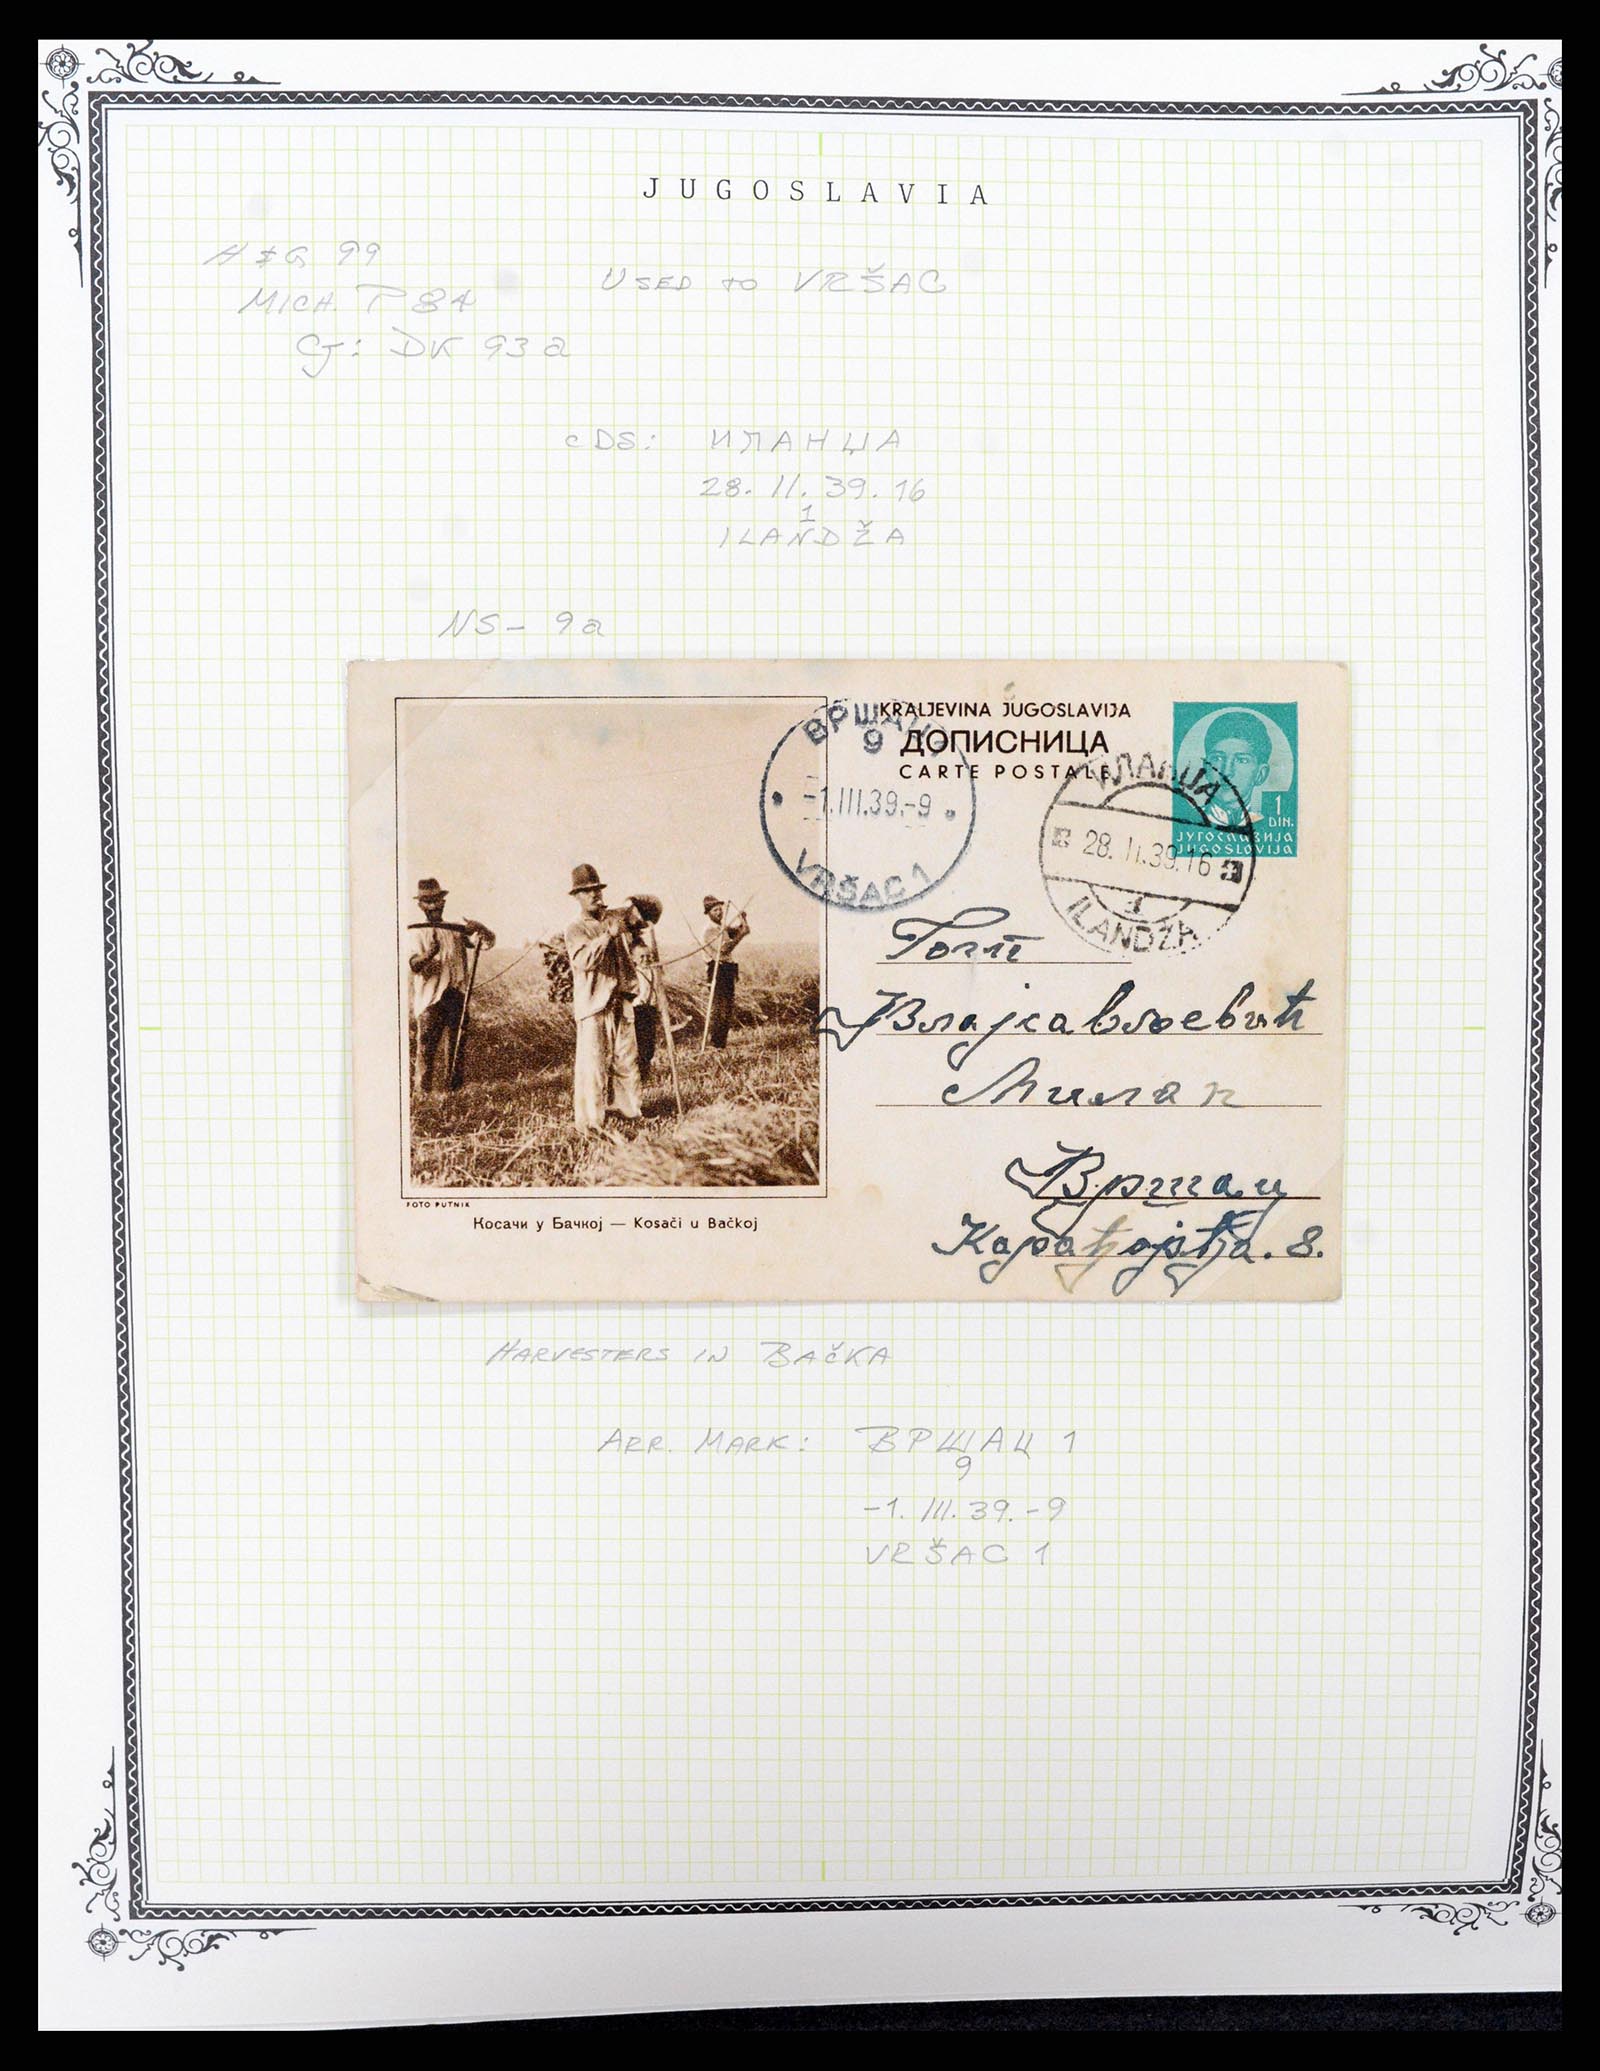 JUGOSLAVIA
H & G 99
USED TO VRŠAC
MICH. P 84
CJ: DK 93a
CDS: ИЛАНЏА
28.II.39.16
1
ILANDŽA
NS- 9a
KRALJEVINA JUGOSLAVIJA
ДОПИСНИЦА
CARTE POSTALE
1
DIN.
ЈУГОСЛАВИЈА
JUGOSLOVIJA
ВРШАЦ
9
-1.III.39.-9
VRŠAC 1
ИЛАНЏА
28.II.39.16
1
ILANDŽA
Влајковљевић
Милан
Вршац
8.
FOTO PUTNIK
Косачи у Бачкој — Kosači u Bačkoj
HARVESTERS IN BAČKA
ARR. MARK: ВРШАЦ 1
9
-1.III.39.-9
VRŠAC 1